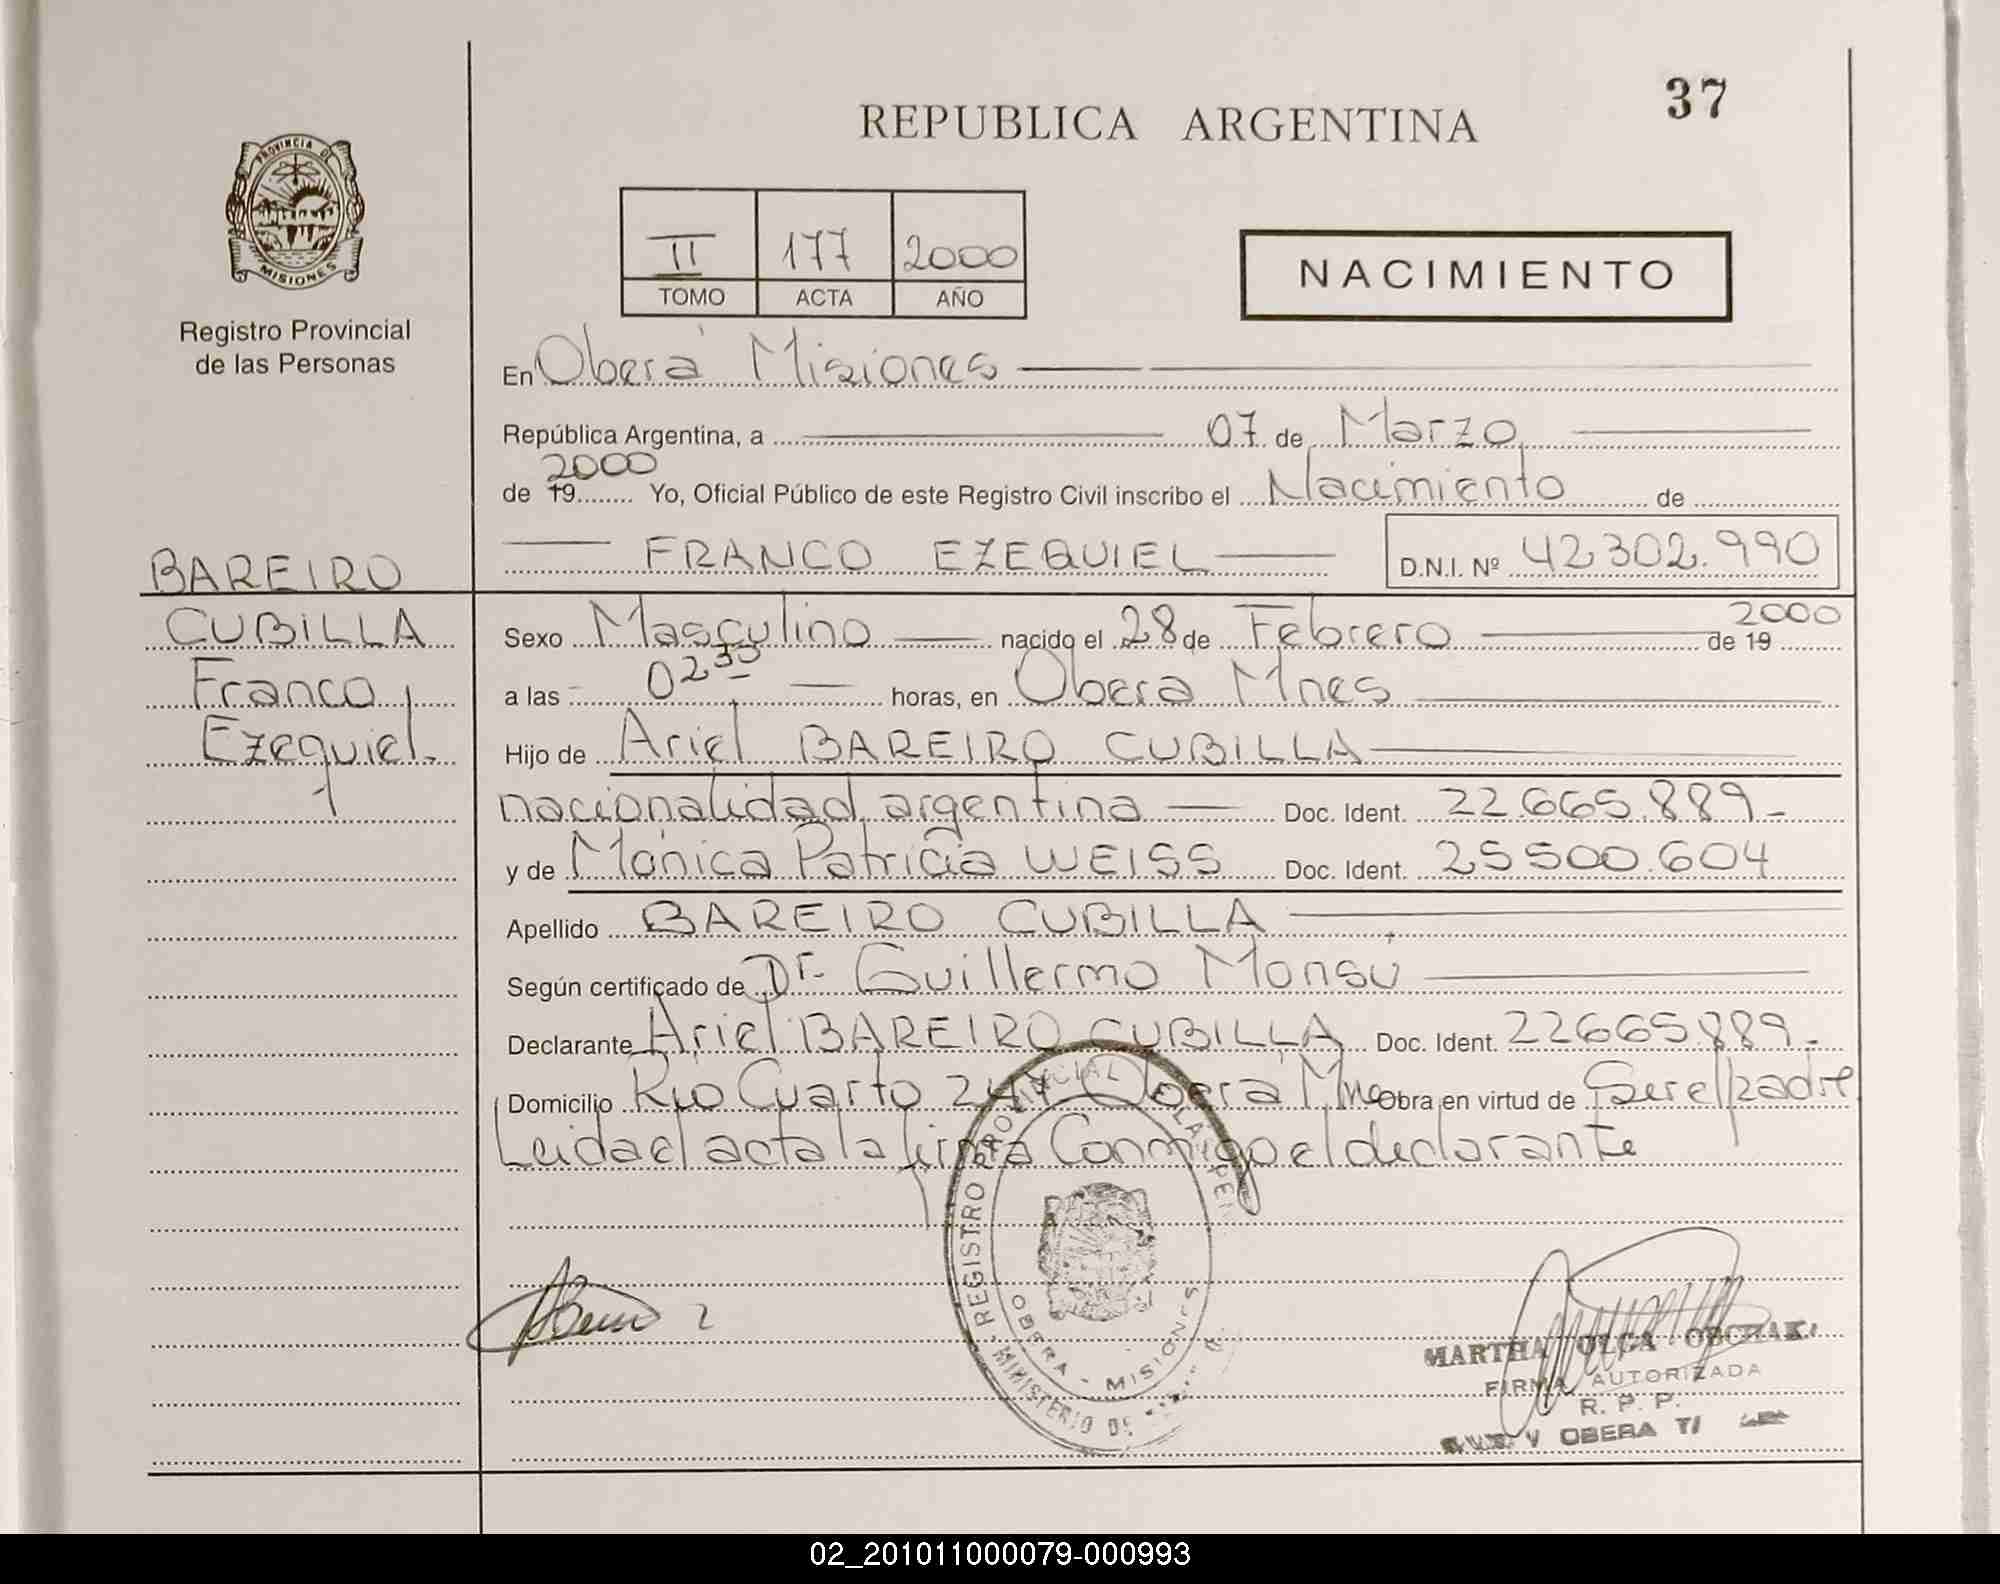 37
REPUBLICA ARGENTINA
PROVINCIA DE MISIONES
Registro Provincial
de las Personas
II 177 2000
TOMO ACTA AÑO
NACIMIENTO
En Oberá Misiones
República Argentina, a 07 de Marzo
2000
de 19 Yo, Oficial Público de este Registro Civil inscribo el Nacimiento de
FRANCO EZEQUIEL D.N.I. Nº 42302.990
BAREIRO
CUBILLA
Franco
Ezequiel.
Sexo Masculino nacido el 28 de Febrero de 19 2000
a las 02 35 horas, en Obera Mnes
Hijo de Ariel BAREIRO CUBILLA
nacionalidad argentina Doc. Ident. 22.665.889-
y de Mónica Patricia WEISS Doc. Ident. 25500.604
Apellido BAREIRO CUBILLA
Según certificado de Dr. Guillermo Monsú
Declarante Ariel BAREIRO CUBILLA Doc. Ident. 22665.889-
Domicilio Rio Cuarto 247 Oberá Mnes Obra en virtud de Ser el padre
Leida el acta la firma Conmigo el declarante
REGISTRO PROVINCIAL LAS PER
OBERA - MISIONES
MINISTERIO DE
MARTHA OLGA
FIRMA AUTORIZADA
R. P. P.
OBERA
02_201011000079-000993